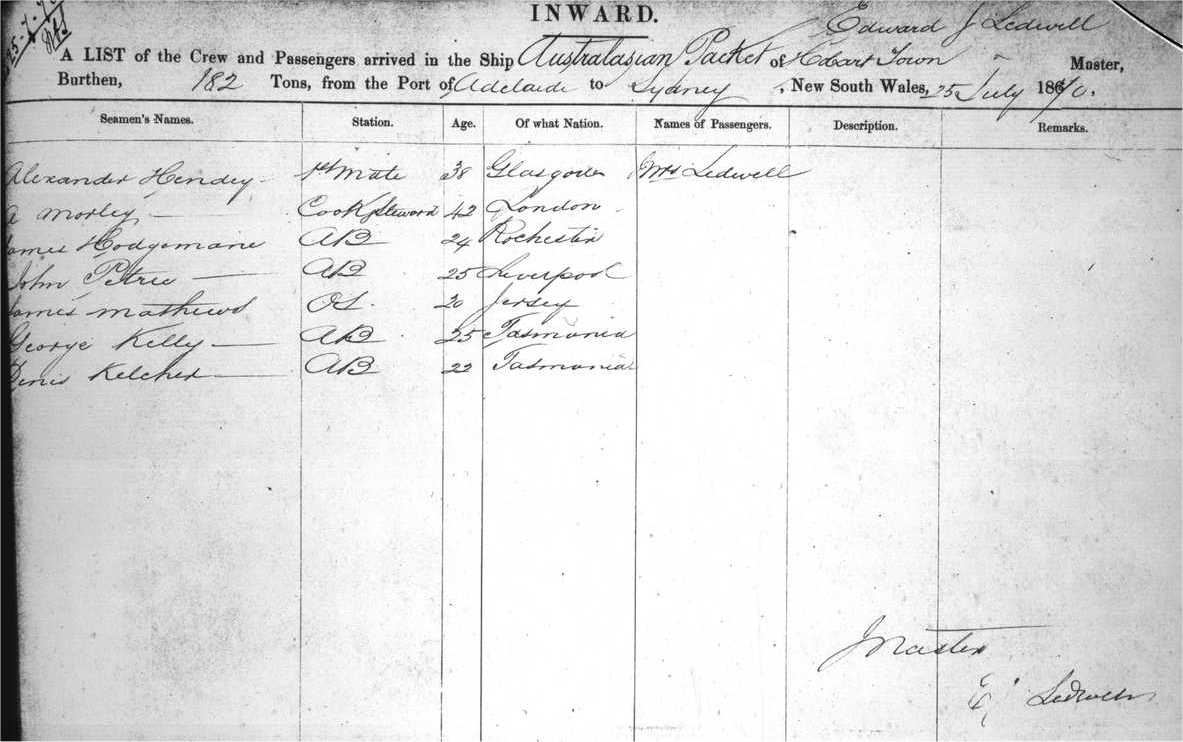 25-7-70
INWARD.
Edward J Ledwell
A LIST of the Crew and Passengers arrived in the Ship Australasian Packet of Hobart Town Master,
Burthen, 182 Tons, from the Port of Adelaide to Sydney, New South Wales, 25 July 1870.
Seamen's Names. Station. Age. Of what Nation. Names of Passengers. Description. Remarks.
Alexander Hendey 1st Mate 38 Glasgow Mrs Ledwell
A Morley Cook Steward 42 London
James Hodgemane AB 24 Rochester
John Petrie AB 25 Liverpool
James Mathews OS 20 Jersey
George Kelly AB 25 Tasmania
Denis Kelcher AB 22 Tasmania
Master
E J Ledwell